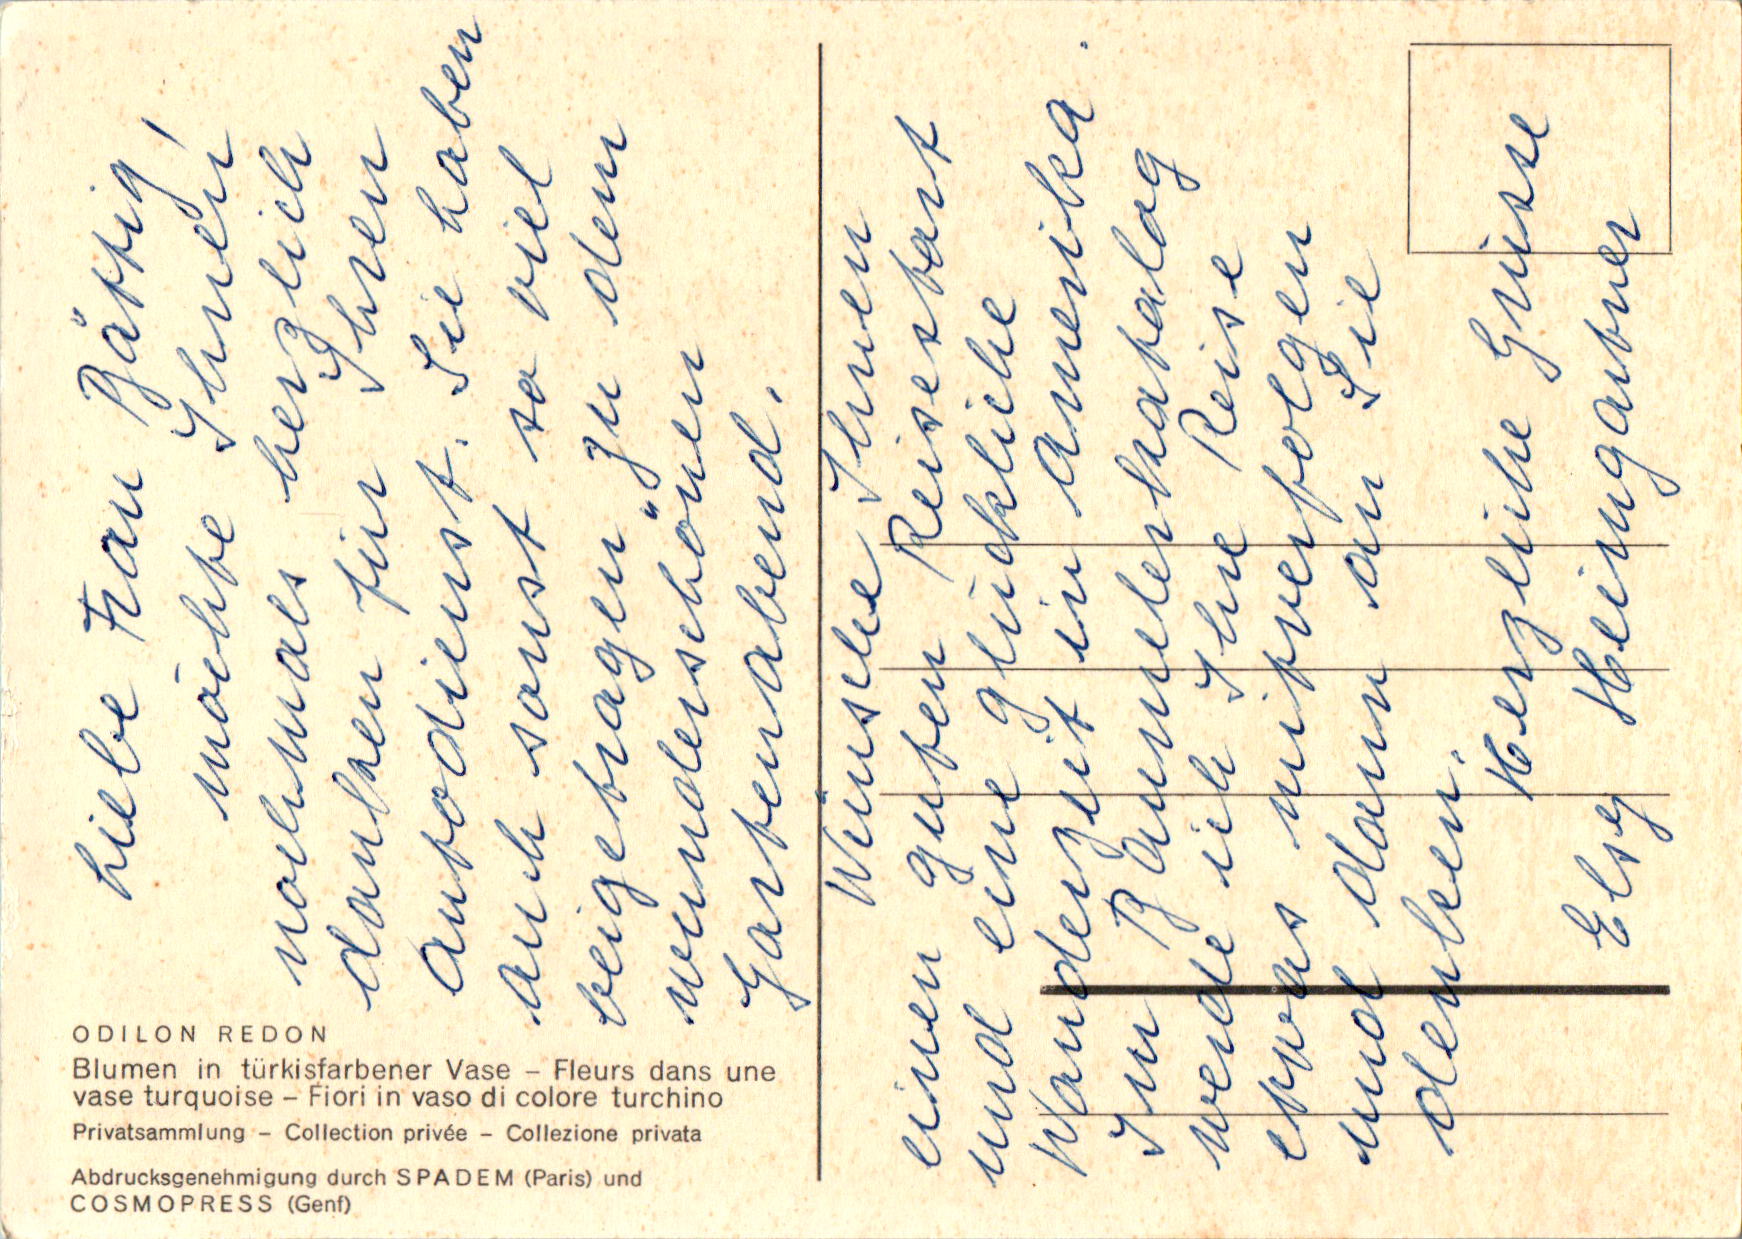 Liebe Frau Bättig!
möchte Ihnen
nochmals herzlich
danken für Ihren
Autodienst. Sie haben
auch sonst so viel
beigetragen zu dem
wunderschönen
Gartenabend.
Wünsche Ihnen
einen guten Reisestart
und eine glückliche
Wanderzeit in Amerika.
Im Baumelerkatalog
werde ich Ihre Reise
etwas mitverfolgen
und dann an Sie
denken.
Herzliche Grüsse
Elsy Heingartner
ODILON REDON
Blumen in türkisfarbener Vase – Fleurs dans une
vase turquoise – Fiori in vaso di colore turchino
Privatsammlung – Collection privée – Collezione privata
Abdrucksgenehmigung durch SPADEM (Paris) und
COSMOPRESS (Genf)